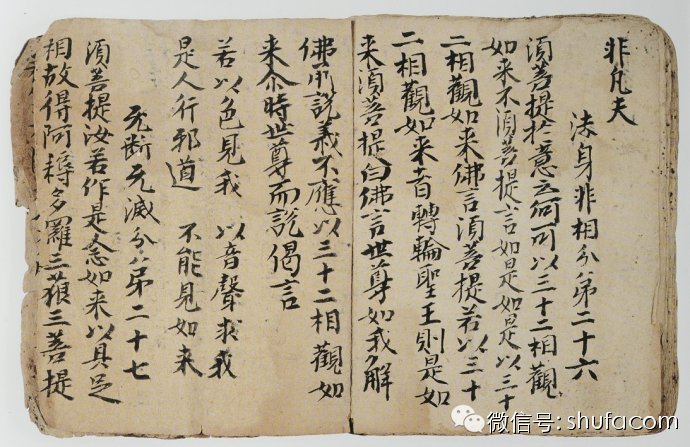 非凡夫
法身非相分第二十六
須菩提於意云何可以三十二相觀
如来不須菩提言如是如是以三十
二相觀如来佛言須菩提若以三十
二相觀如来者轉輪聖王則是如
来須菩提白佛言世尊如我解
佛所說義不應以三十二相觀如
来尒時世尊而說偈言
若以色見我 以音聲求我
是人行邪道 不能見如来
无断无滅分第二十七
須菩提汝若作是念如来以具足
相故得阿耨多羅三藐三菩提
微信号: shufacom